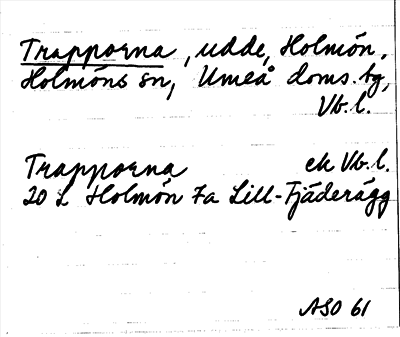 Trapporna, udde, Holmön.
Holmöns sn, Umeå doms. tg,
Vb. l.
Trapporna ek Vb. l.
20 L Holmön 7a Lill-Fjäderägg
ASO 61